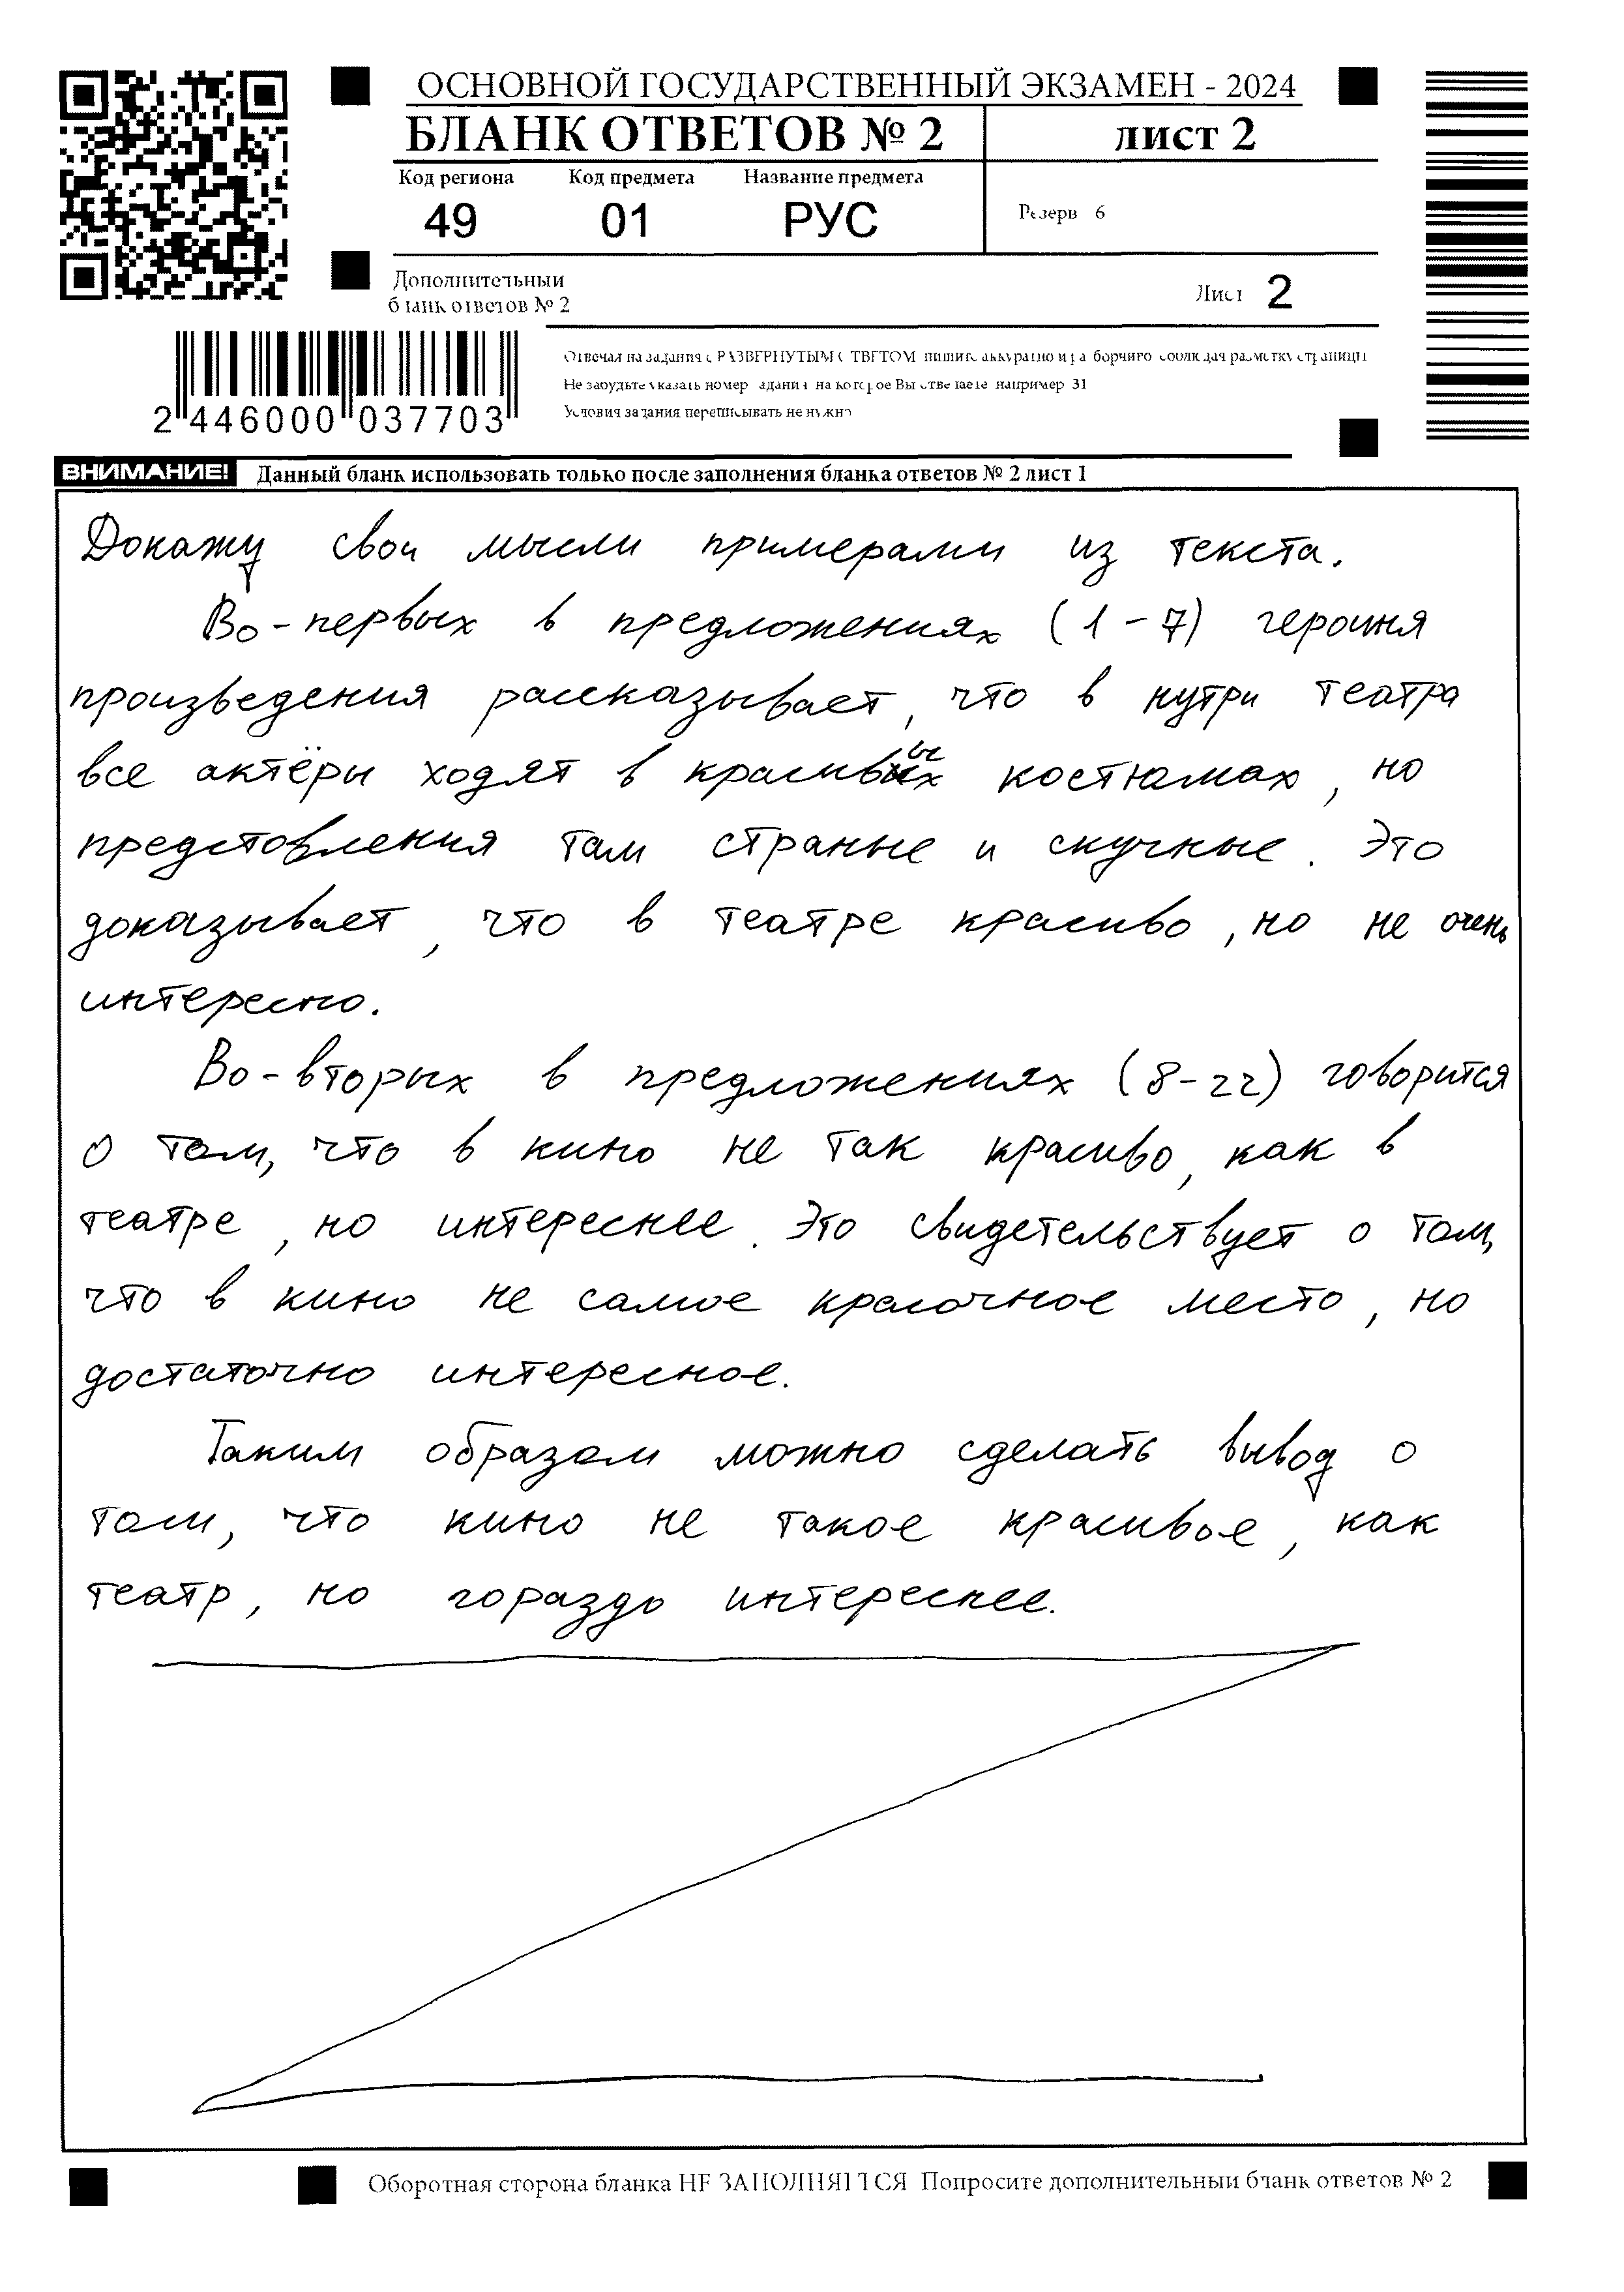 ОСНОВНОЙ ГОСУДАРСТВЕННЫЙ ЭКЗАМЕН - 2024
БЛАНК ОТВЕТОВ № 2 лист 2
Код региона Код предмета Название предмета
49 01 РУС
Резерв 6
Дополнительный
бланк ответов № 2
Лист 2
Отвечая на задания с РАЗВЕРНУТЫМ ОТВЕТОМ, пишите аккуратно и разборчиво, соблюдая разметку страницы
Не забудьте указать номер задания, на которое Вы отвечаете, например 31
Условия задания переписывать не нужно
2 446000 037703
ВНИМАНИЕ! Данный бланк использовать только после заполнения бланка ответов № 2 лист 1
Докажу свои мысли примерами из текста.
Во-первых в предложениях (1-7) героиня
произведения рассказывает, что в нутри театра
все актёры ходят в красивых костюмах, но
предстовления там страные и скучные. Это
доказывает, что в театре красиво, но не очень
интересно.
Во-вторых в предложениях (8-22) говорится
о том, что в кино не так красиво, как в
театре, но интереснее. Это свидетельствует о том,
что в кино не самое красочное место, но
достаточно интересное.
Таким образом можно сделать вывод о
том, что кино не такое красивое, как
театр, но гораздо интереснее.
Оборотная сторона бланка НЕ ЗАПОЛНЯЕТСЯ Попросите дополнительный бланк ответов № 2